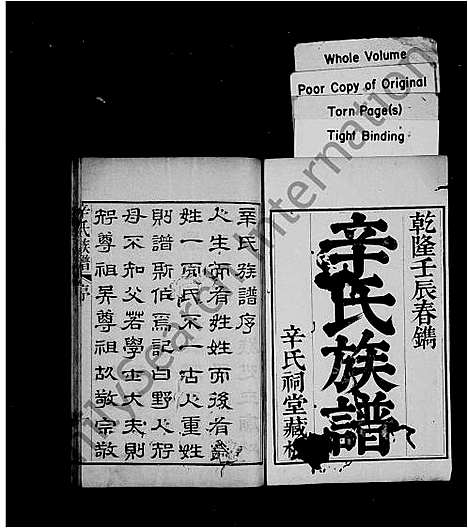 Whole Volume
Poor Copy of Original
Torn Page(s)
Tight Binding
乾隆壬辰春鐫
辛氏族譜
辛氏祠堂藏板
辛氏族譜序
人生而有姓姓而後有
姓一而氏不一古人重姓
則譜斯作焉記曰野人知
母不知父若學士大夫則
知尊祖矣尊祖故敬宗敬
辛氏族譜 序
milySearch International